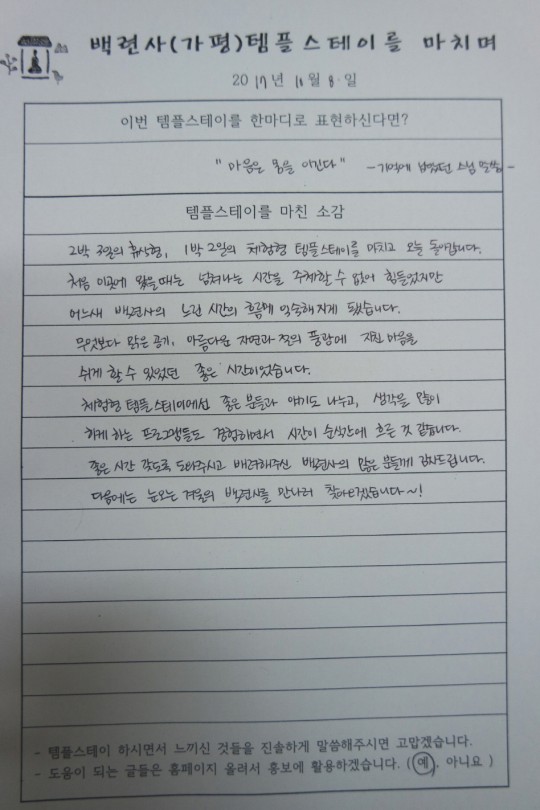 백련사(가평)템플스테이를 마치며
2017년 10월 8일
이번 템플스테이를 한마디로 표현하신다면?
"마음은 몸을 이긴다" -기억에 남았던 스님 말씀-
템플스테이를 마친 소감
2박 3일의 휴식형, 1박 2일의 체험형 템플스테이를 마치고 오늘 돌아갑니다.
처음 이곳에 왔을때는 넘쳐나는 시간을 주체할 수 없어 힘들었지만
어느새 백련사의 느린 시간의 흐름에 익숙해지게 됐습니다.
무엇보다 맑은 공기, 아름다운 자연과 절의 풍광에 지친 마음을
쉬게 할 수 있었던 좋은 시간이었습니다.
체험형 템플스테이에선 좋은 분들과 얘기도 나누고, 생각을 많이
하게 하는 프로그램들도 경험하면서 시간이 순식간에 흐른 것 같습니다.
좋은 시간 갖도록 도와주시고 배려해주신 백련사의 많은 분들께 감사드립니다.
다음에는 눈오는 겨울의 백련사를 만나러 찾아오겠습니다~!
- 템플스테이 하시면서 느끼신 것들을 진솔하게 말씀해주시면 고맙겠습니다.
- 도움이 되는 글들은 홈페이지 올려서 홍보에 활용하겠습니다. (예, 아니요)